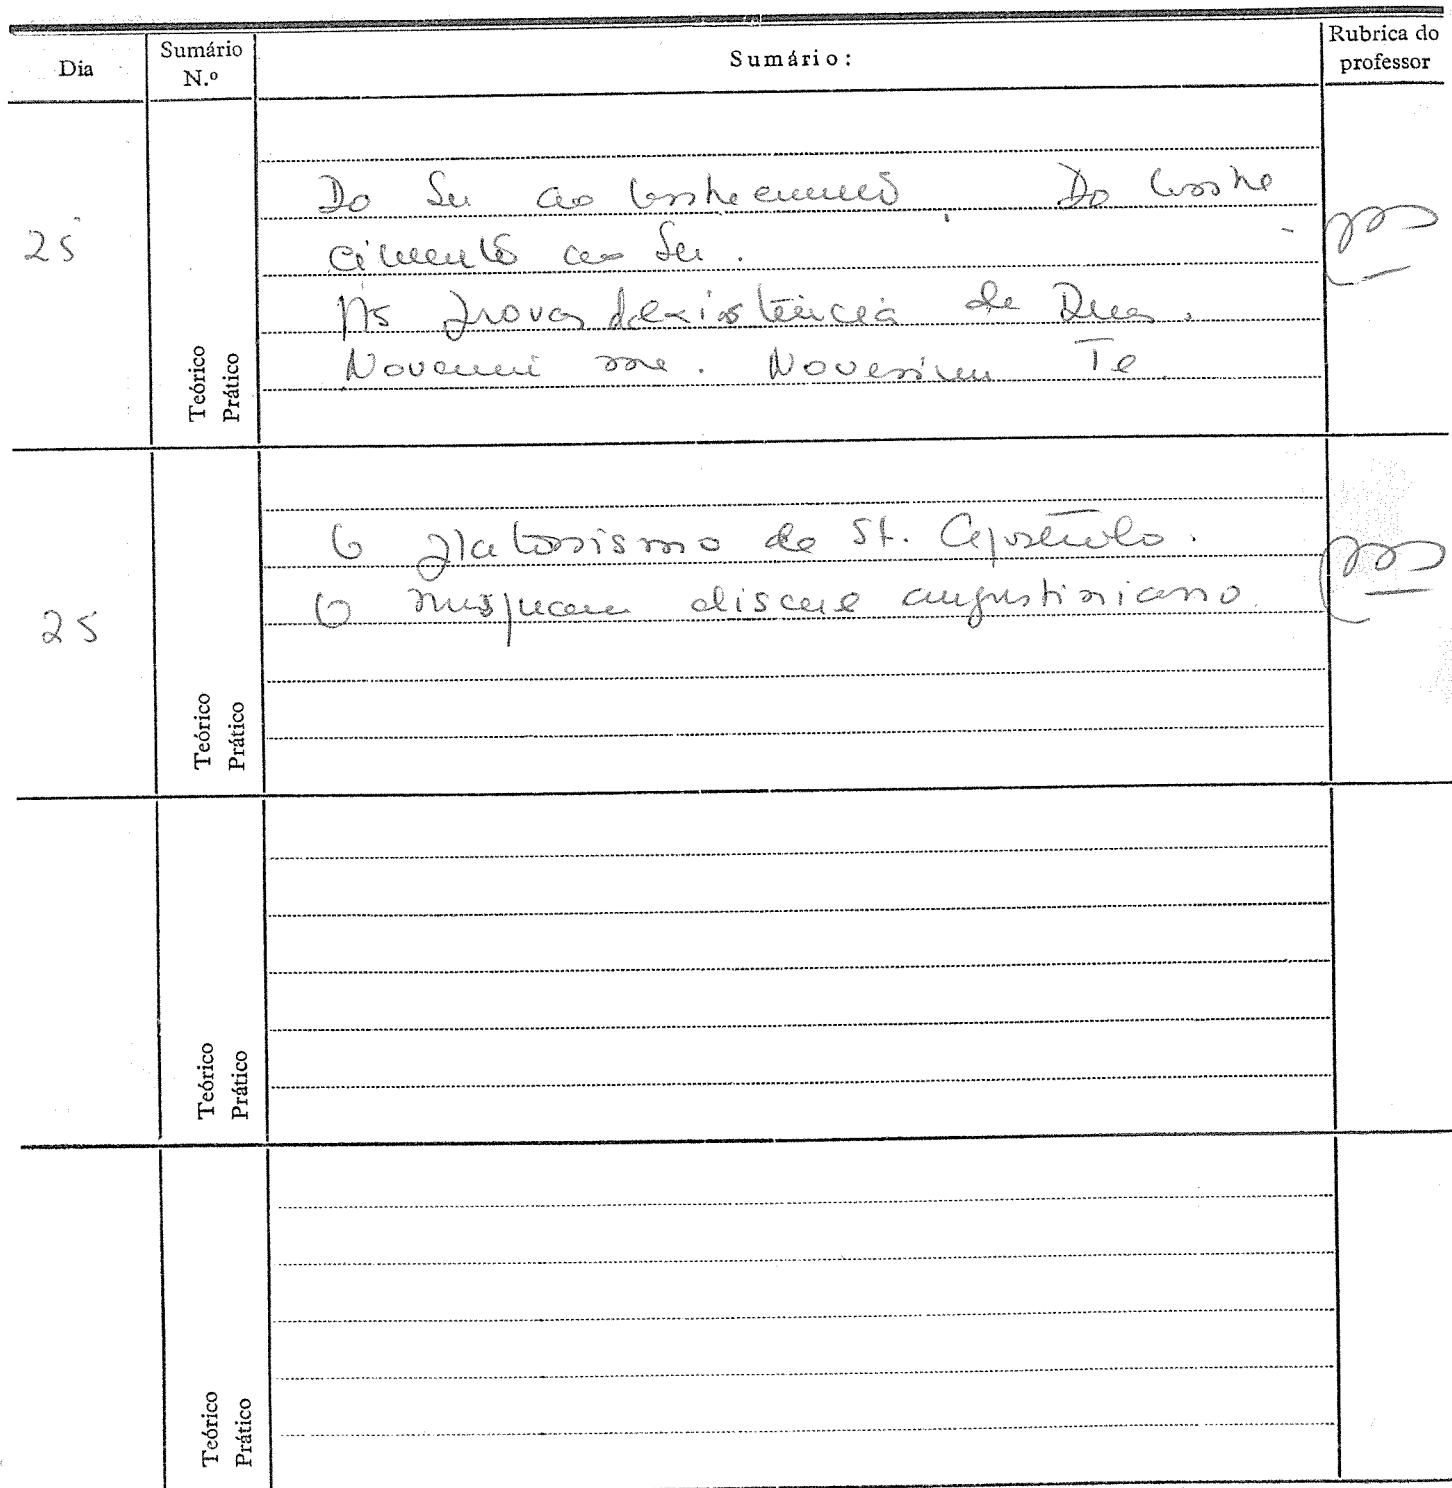 Dia
Sumário N.º
Sumário:
Rubrica do professor
25
Do Ser ao conhecimento. Do conhe
cimento ao Ser.
As provas da existência de Deus.
Noverim me. Noverim Te.
Teórico
Prático
25
O platonismo de St. Agostinho.
O nusquam discere augustiniano.
Teórico
Prático
Teórico
Prático
Teórico
Prático